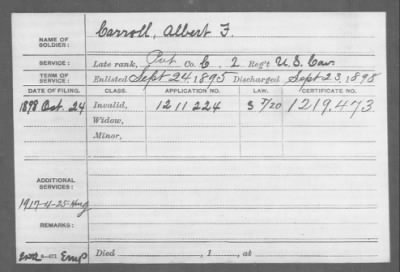 NAME OF SOLDIER: Carroll, Albert F.
SERVICE: Late rank, Pvt Co. C. 2 Reg't U.S. Cav.
TERM OF SERVICE: Enlisted Sept 24, 1895 Discharged Sept 23, 1898
DATE OF FILING. CLASS. APPLICATION NO. LAW. CERTIFICATE NO.
1898 Oct. 24 Invalid, 1211224 1219,473
Widow,
Minor,
ADDITIONAL SERVICES:
1917-4-25
REMARKS:
Died , 1 , at